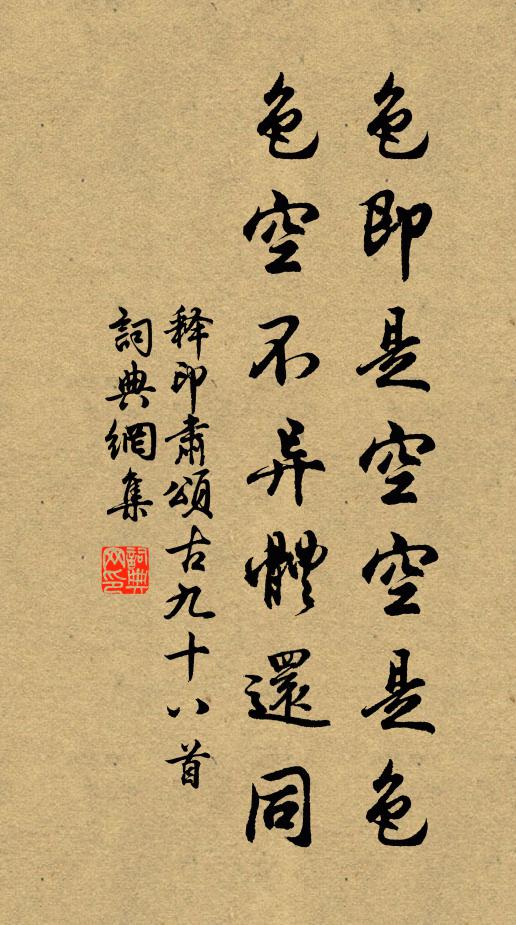 色即是空空是色
色空不异體還同
释印肅頌古九十八首
詞典網集
詞典网印